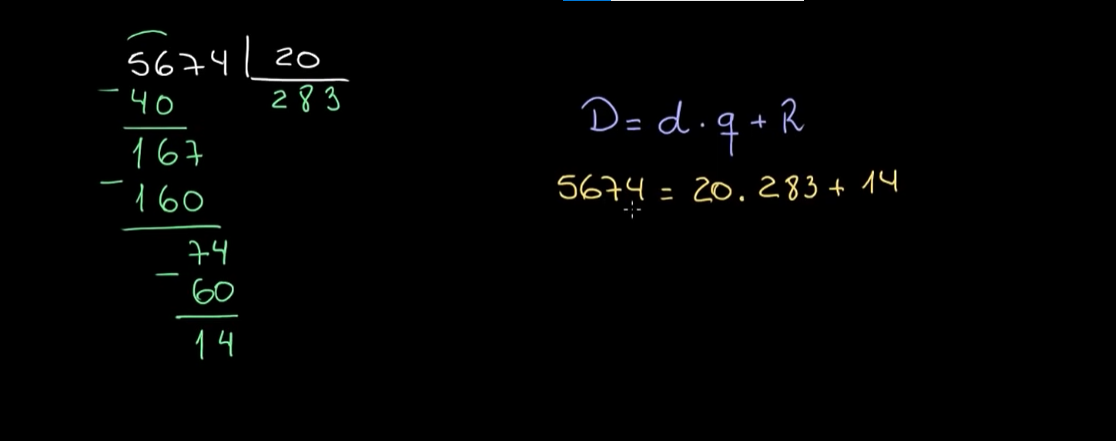 5674 20
- 40 283
167
- 160
74
- 60
14
D = d . q + R
5674 = 20 . 283 + 14